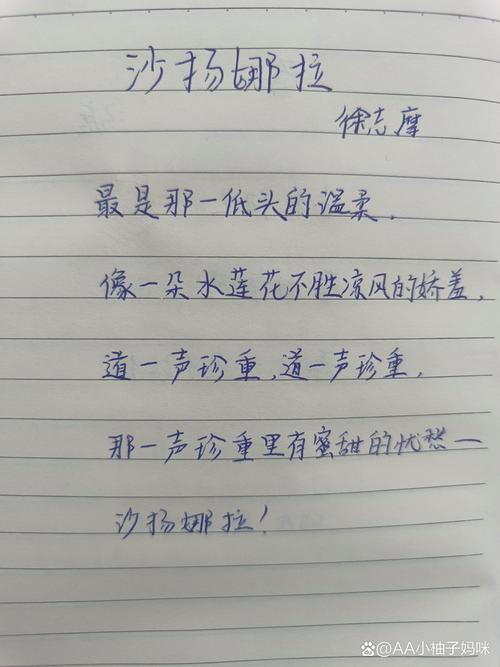 沙扬娜拉
徐志摩
最是那一低头的温柔,
像一朵水莲花不胜凉风的娇羞,
道一声珍重,道一声珍重,
那一声珍重里有蜜甜的忧愁—
沙扬娜拉!
@AA小柚子妈咪